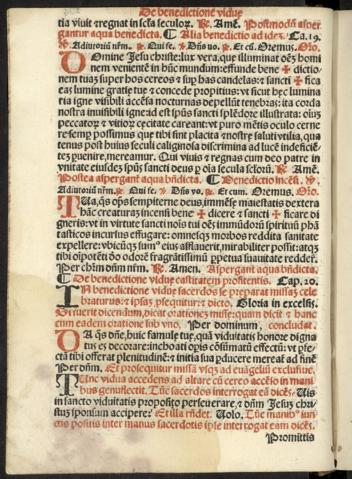 De benedictione vidue
tia viuit ⁊ regnat in scła seculoꝝ. ℟. Amē. Postmodū asper
gantur aqua benedicta. ¶ Alia benedictio ad idē. Ca. 19.
℣. Adiutoriū nr̄m. ℟. Qui fe. ℣. Dn̄s vo. ℟. Et cū. Oremus. Oīo.
Domine Jesu christe: lux vera, que illuminat oēʒ homi
nem venientē in hūc mundum: effunde bene ✠ dictio-
nem tuaʒ super hos cereos ⁊ sup has candelas: ⁊ sancti ✠ fica
eas lumine gratię tue ⁊ concede propitius: vt sicut hęc lumina
ria igne visibili accēsa nocturnas depellūt tenebras: ita corda
nostra inuisibili igne id est spūs sancti splēdore illustrata: oīuʒ
peccatoꝝ ⁊ vitioꝝ cęcitate careant: vt puro mētis oculo cerne
re semp possimus que tibi sint placita ⁊ nostre saluti vtilia, qua
tenus post huius seculi caliginosa discrimina ad lucē indeficiē-
tez puenire, mereamur. Qui viuis ⁊ regnas cum deo patre in
vnitate eiusdeʒ spūs sancti deus p oīa secula scłoꝝ. ℟. Amē.
Postea aspergant aqua bn̄dicta. ¶ Benedictio incēsi. ℣.
Adiutoriū nr̄m. ℟. Qui fe. ℣. Dn̄s vo. ℟. Et cum. Oremus. Oīo.
Tua, qs ops sempiterne deus, immēse maiestatis dextera
hāc creaturaʒ incensi bene ✠ dicere ⁊ sancti ✠ ficare di
gneris: vt in virtute sancti nois tui oēs immūdoꝝ spirituū phā
tasticos incursus effugare: omnesqʒ morbos reddita sanitate
expellere: vbicūqʒ fum⁹ eius afflauerit, mirabiliter possit: atqʒ
tibi oīpotēti do odore fragrātissimū ppetua suauitate redder.
Per chr̄m dn̄m nr̄m. ℟. Amen. Aspergant aqua bn̄dicta.
¶ De benedictione viduę castitatem profitentis. Cap. 20.
In benedictione viduę sacerdos se preparat missaʒ cele
braturus: ⁊ ipsaʒ psequitur: ⁊ dicto. Gloria in excelsis.
Si fuerit dicendum, dicat orationeʒ missę: quam dicit ⁊ hanc
eum eadem oratione sub vno. Per dominum, concludat.
Da qs dn̄e, huic famulę tuę, quā viduitatis honore digna
tus es decorare: inchoati opis cōsumatū effectū: vt pfe-
ctā tibi offerat plenitudinē: ⁊ initia sua pducere mereat ad finē
Per dn̄m. Et prosequitur missā vsqʒ ad euāgeliū exclusiue.
Tunc vidua accedens ad altare cū cereo accēso in mani
bus genuflectit. Tūc sacerdos interrogat eā dicēs. Uis
in sancto viduitatis proposito perseuerare, ⁊ dn̄m Jesuʒ chri-
stuʒ sponsum accipere? Et illa rn̄det. Uolo. Tūc manib⁹ iun
ctis positis inter manus sacerdotis ipse interrogat eam dicēs.
Promittis